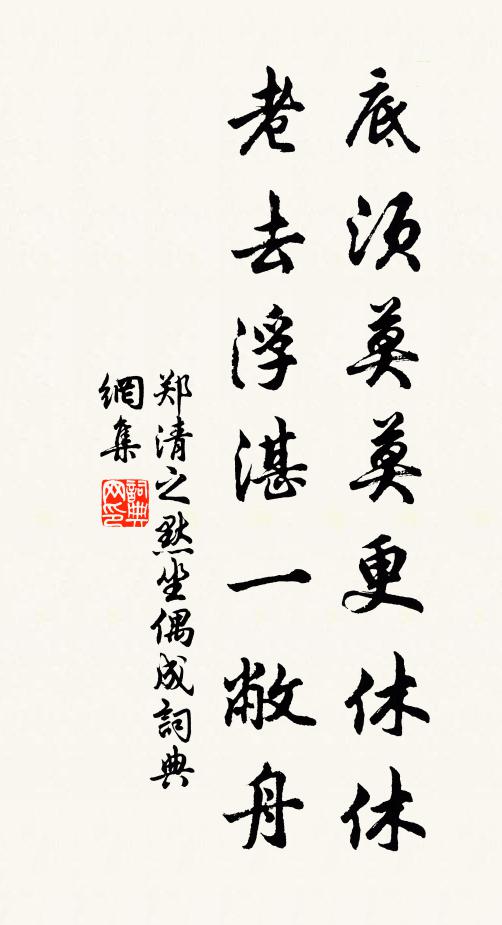 底須莫莫更休休
老去浮湛一敝舟
郑清之默坐偶成詞典
網集
詞典网印